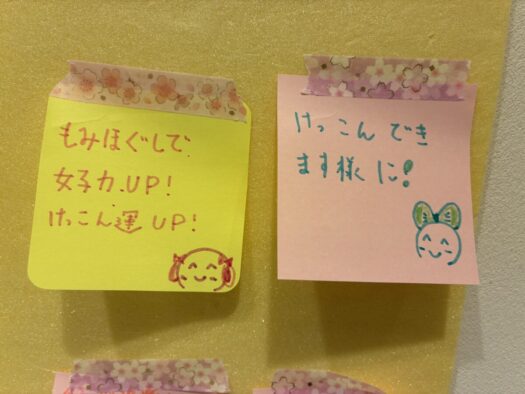 もみほぐしで
女子力.UP!
けっこん運UP!
けっこんでき
ます様に!